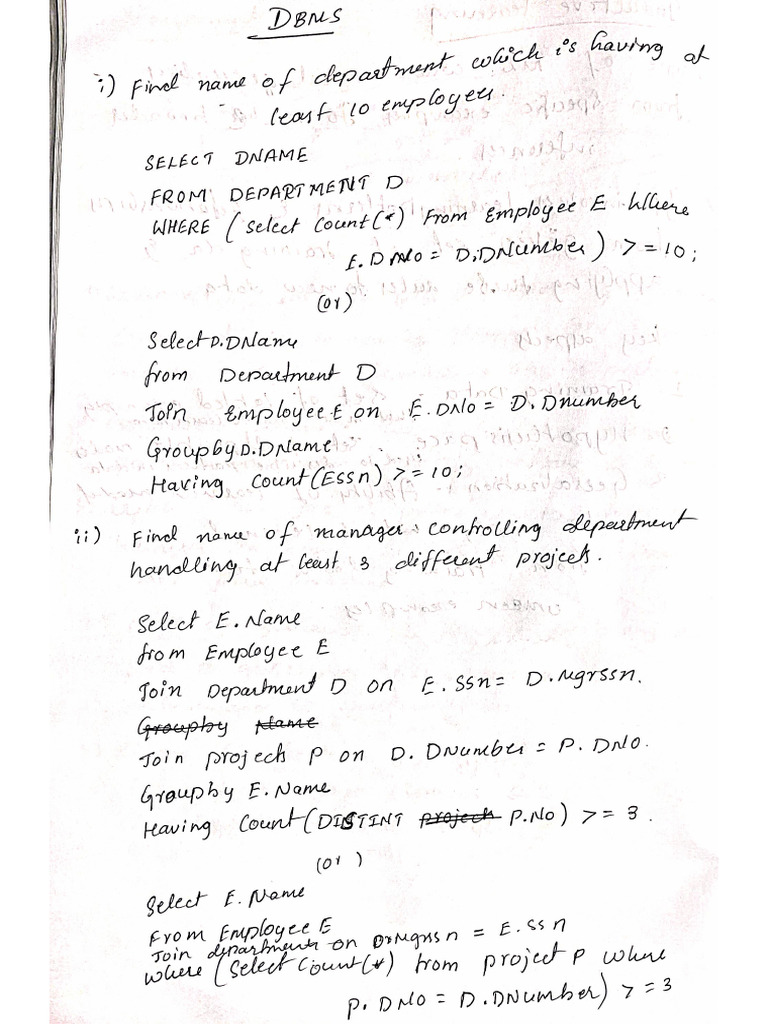 DBMS
i) Find name of department which is having at
least 10 employees.
SELECT DNAME
FROM DEPARTMENT D
WHERE (Select Count(*) From Employee E Where
E.DNo = D.DNumber) >=10;
(or)
Select D.DName
from Department D
Join Employee E on E.DNo = D.Dnumber
Groupby D.DName
Having Count(Essn) >=10;
ii) Find name of manager controlling department
handling at least 3 different projects.
Select E.Name
from Employee E
Join Department D on E.Ssn = D.Mgrssn.
Groupby Name
Join projects P on D.DNumber = P.DNo.
Groupby E.Name
Having Count(DISTINT projects P.No) >= 3.
(or)
Select E.Name
From Employee E
Join departments on D.Mgrssn = E.ssn
where (Select Count(*) from project P where
P.DNo = D.DNumber) >=3